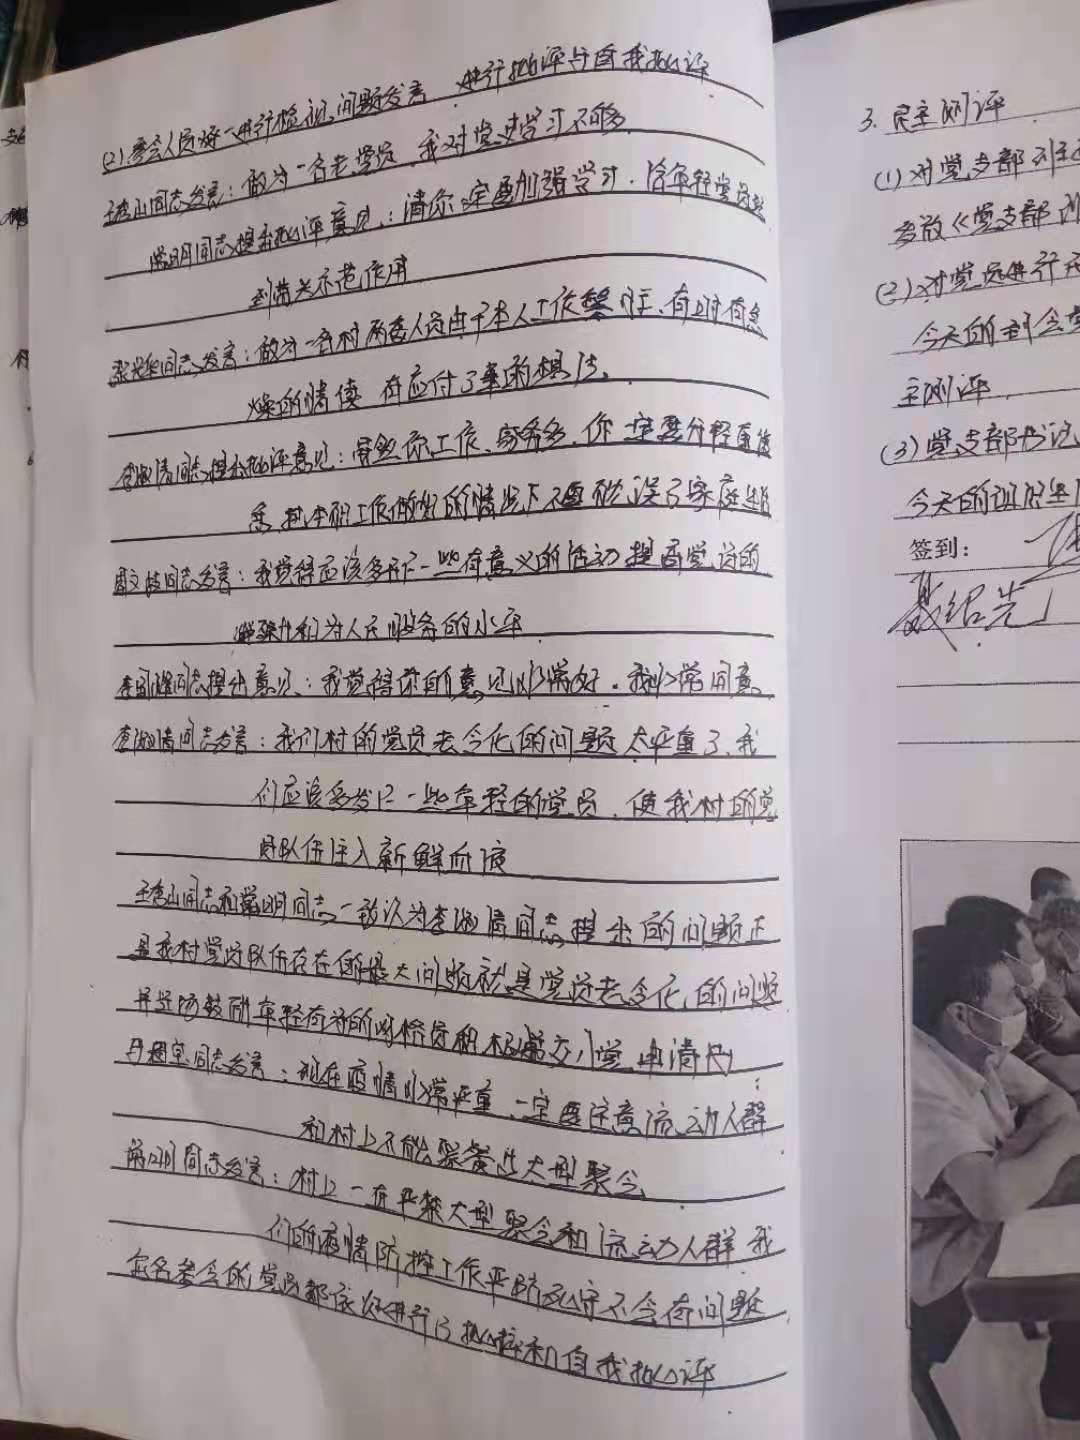 (2).参会人员逐一进行检视问题发言 进行批评与自我批评
同志发言：做为一名老党员，我对党史学习不够
同志提出批评意见：请你一定要加强学习，给年轻党员起
到带头示范作用
同志发言：做为一名村两委人员由于本人工作繁忙，有时有急
燥的情绪 有应付了事的想法。
同志提出批评意见：虽然你工作、家务多，你一定要分轻重缓
急 把本职工作做好的情况下不要耽误了家庭生活
同志发言：我觉得应该多开一些有意义的活动 提高党员的
为人民服务的水平
同志提出意见：我觉得你的意见非常好，我非常同意
同志发言：我们村的党员老令化的问题太严重了，我
们应该多发展一些年轻的党员，使我村的党
员队伍注入新鲜血液
同志和 同志一致认为 同志提出的问题正
是我村党员队伍存在的最大问题就是党员老令化的问题
并 鼓励年轻有为的 积极 交入党申请书
同志发言：现在疫情非常严重，一定要注意流动人群
和村上不能聚餐及大型聚会
同志发言：村上一直严禁大型聚会和流动人群 我
们的疫情防控工作严防死守不会有问题
名参会的党员都依次进行了批评和自我批评
3. 民主测评
(1) 对党支部
发放《党支部
(2) 对党员进行
今天的到会党
主测评.
(3) 党支部书记
今天的
签到：
聂绍先